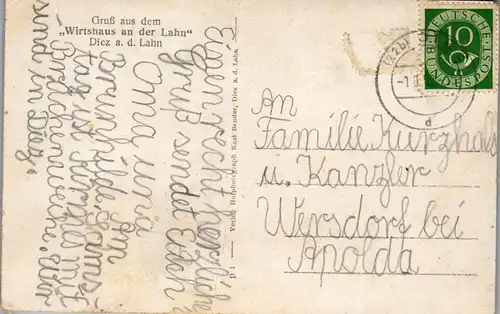 Gruß aus dem
„Wirtshaus an der Lahn"
Diez a. d. Lahn
Einen recht herzlichen
Gruß sendet Euch
Oma und
Brunhilde. Am
Samstag ist
mit
wir
sind in Diez.
Verlag Hofphotograph Emil Bender, Diez a. d. Lahn
P 1
DEUTSCHE
BUNDESPOST
10
(22b)
d
An
Familie Kurzhals
u. Kanzler
Wersdorf bei
Apolda